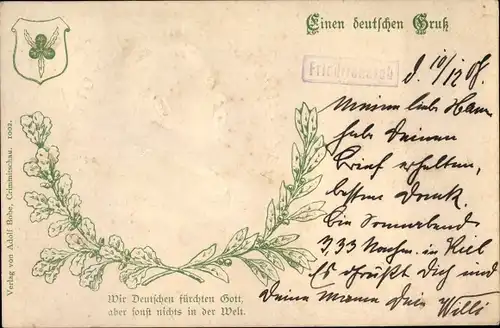 Einen deutschen Gruß
Friedrichsruh
d. 10/12 08.
Meine liebe
habe Deinen
Brief erhalten,
besten Dank.
Bin Sonnabend
7,33 Nachm. in Kiel
Es grüßt Dich und
Deine Mama Dein Willi
Wir Deutschen fürchten Gott,
aber sonst nichts in der Welt.
Verlag von Adolf Bohe, Crimmitschau. 1002.